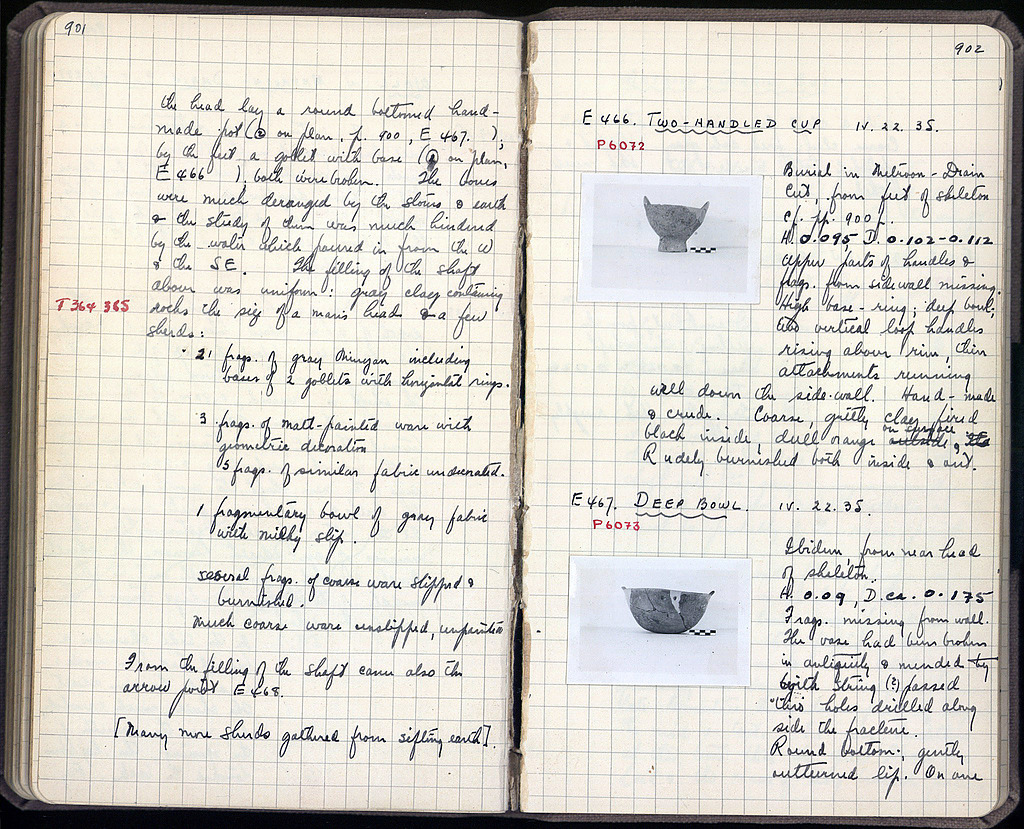 901
the head lay a round bottomed hand-
made pot (② on plan, p. 900, E 467. ),
by the feet a goblet with base (① on plan,
E 466 ). both were broken. The bones
were much deranged by the stones & earth
& the study of them was much hindered
by the water which poured in from the W
& the SE. The filling of the shaft
above was uniform: gray clay containing
T 364 365
rocks the size of a man's head & a few
sherds:
21 frags. of gray Minyan including
bases of 2 goblets with horizontal rings.
3 frags. of matt-painted ware with
geometric decoration
5 frags. of similar fabric undecorated.
1 fragmentary bowl of gray fabric
with milky slip.
several frags. of coarse ware slipped &
burnished.
Much coarse ware unslipped, unpainted
From the filling of the shaft came also the
arrow point E 468.
[Many more sherds gathered from sifting earth].
902
E 466. TWO-HANDLED CUP IV. 22. 35.
P6072
Burial in Metroon-Drain
Cut, from feet of skeleton
cf. pp. 900 f.
H. 0.095, D. 0.102-0.112
Upper parts of handles &
frags. from side wall missing.
High base-ring; deep bowl;
two vertical loop handles
rising above rim, their
attachments running
well down the side-wall. Hand-made
& crude. Coarse, gritty clay fired
black inside, dull orange on surface outside,
Rudely burnished both inside & out.
E 467. DEEP BOWL. IV. 22. 35.
P6073
Ibidem, from near head
of skeleton.
H. 0.09, D. ca. 0.175
Frags. missing from wall.
The vase had been broken
in antiquity & mended by
with string (?) passed
thro holes drilled along
side the fracture.
Round bottom; gently
outturned lip. On one